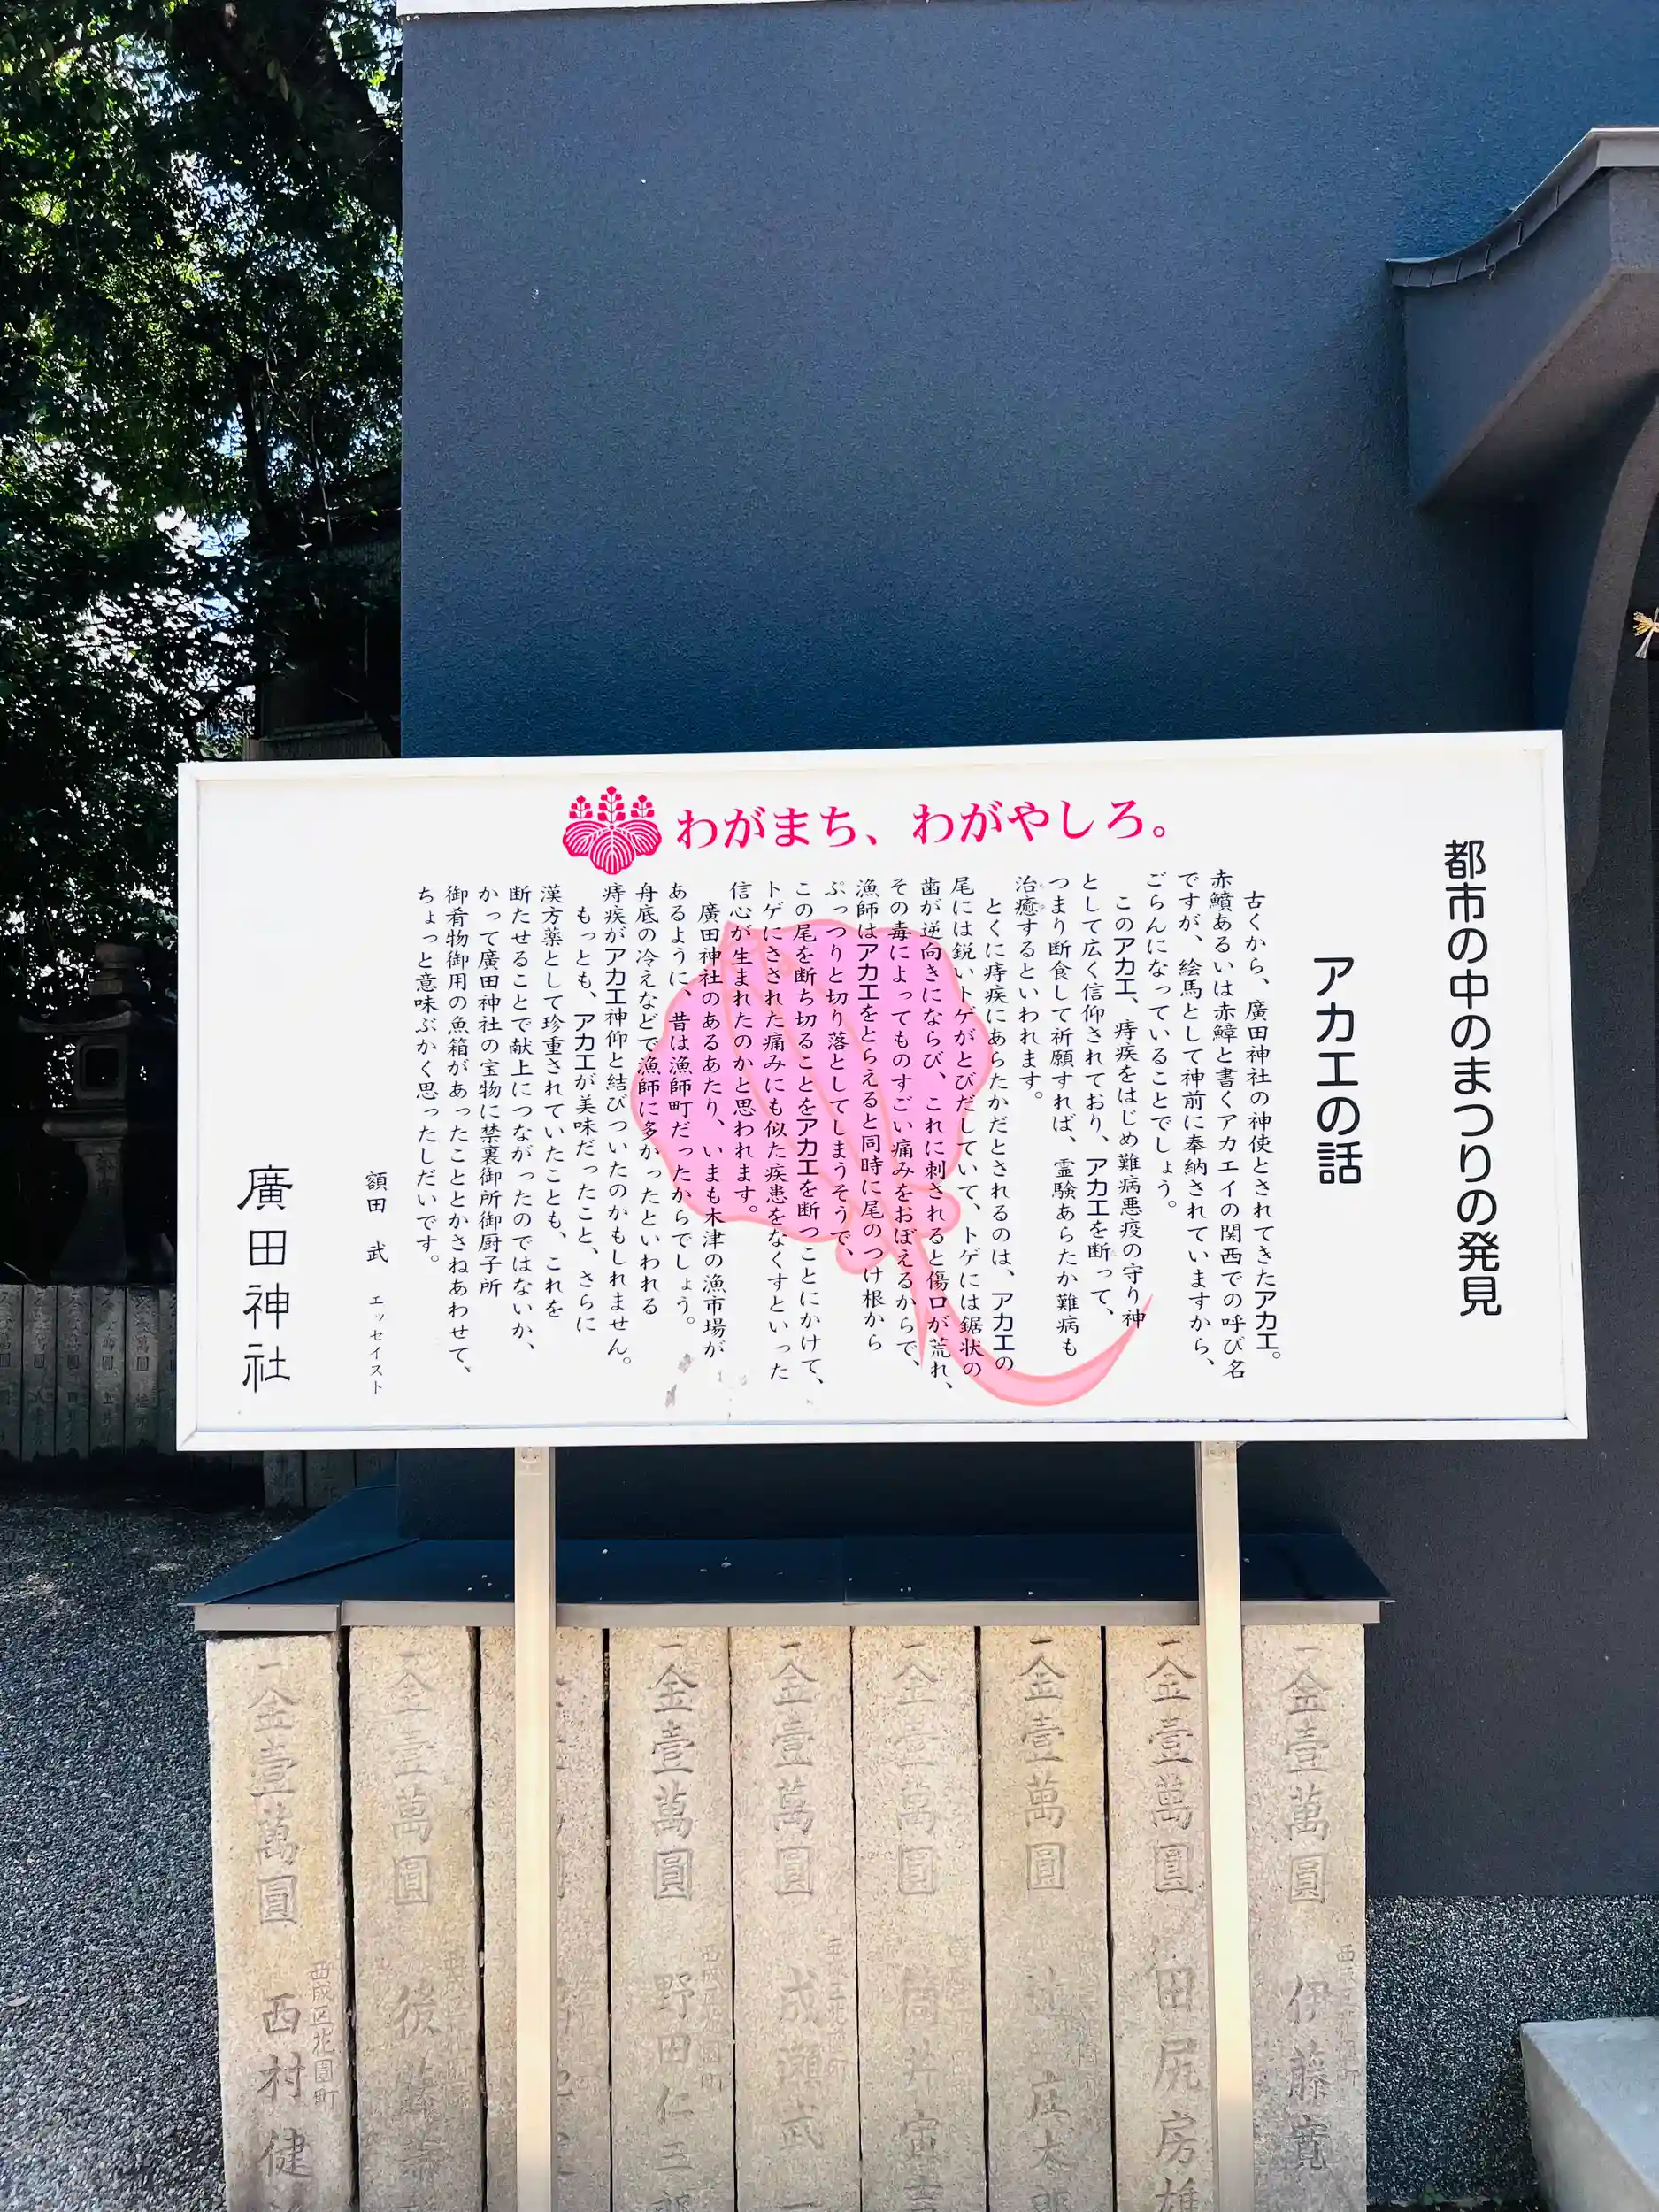 わがまち、わがやしろ。
都市の中のまつりの発見
アカエの話
古くから、廣田神社の神使とされてきたアカエ。
赤鱝あるいは赤鱏と書くアカエイの関西での呼び名
ですが、絵馬として神前に奉納されていますから、
ごらんになっていることでしょう。
このアカエ、痔疾をはじめ難病悪疫の守り神
として広く信仰されており、アカエを断って、
つまり断食して祈願すれば、霊験あらたか難病も
治癒するといわれます。
とくに痔疾にあらたかだとされるのは、アカエの
尾には鋭いトゲがとびだしていて、トゲには鋸状の
歯が逆向きにならび、これに刺されると傷口が荒れ、
その毒によってものすごい痛みをおぼえるからで、
漁師はアカエをとらえると同時に尾のつけ根から
ぷっつりと切り落としてしまうそうで、
この尾を断ち切ることをアカエを断つことにかけて、
トゲにさされた痛みにも似た疾患をなくすといった
信心が生まれたのかと思われます。
廣田神社のあるあたり、いまも木津の漁市場が
あるように、昔は漁師町だったからでしょう。
舟底の冷えなどで漁師に多かったといわれる
痔疾がアカエ神仰と結びついたのかもしれません。
もっとも、アカエが美味だったこと、さらに
漢方薬として珍重されていたことも、これを
断たせることで献上につながったのではないか、
かって廣田神社の宝物に禁裏御所御厨子所
御肴物御用の魚箱があったこととかさねあわせて、
ちょっと意味ぶかく思ったしだいです。
額田 武 エッセイスト
廣田神社
一金壹萬圓 伊藤寛
一金壹萬圓 田尻房雄
一金壹萬圓 庄太郎
一金壹萬圓 筒井寅吉
一金壹萬圓 成瀬武一
一金壹萬圓 野田仁三郎
一金壹萬圓 後藤
一金壹萬圓 西成区花園町 西村健